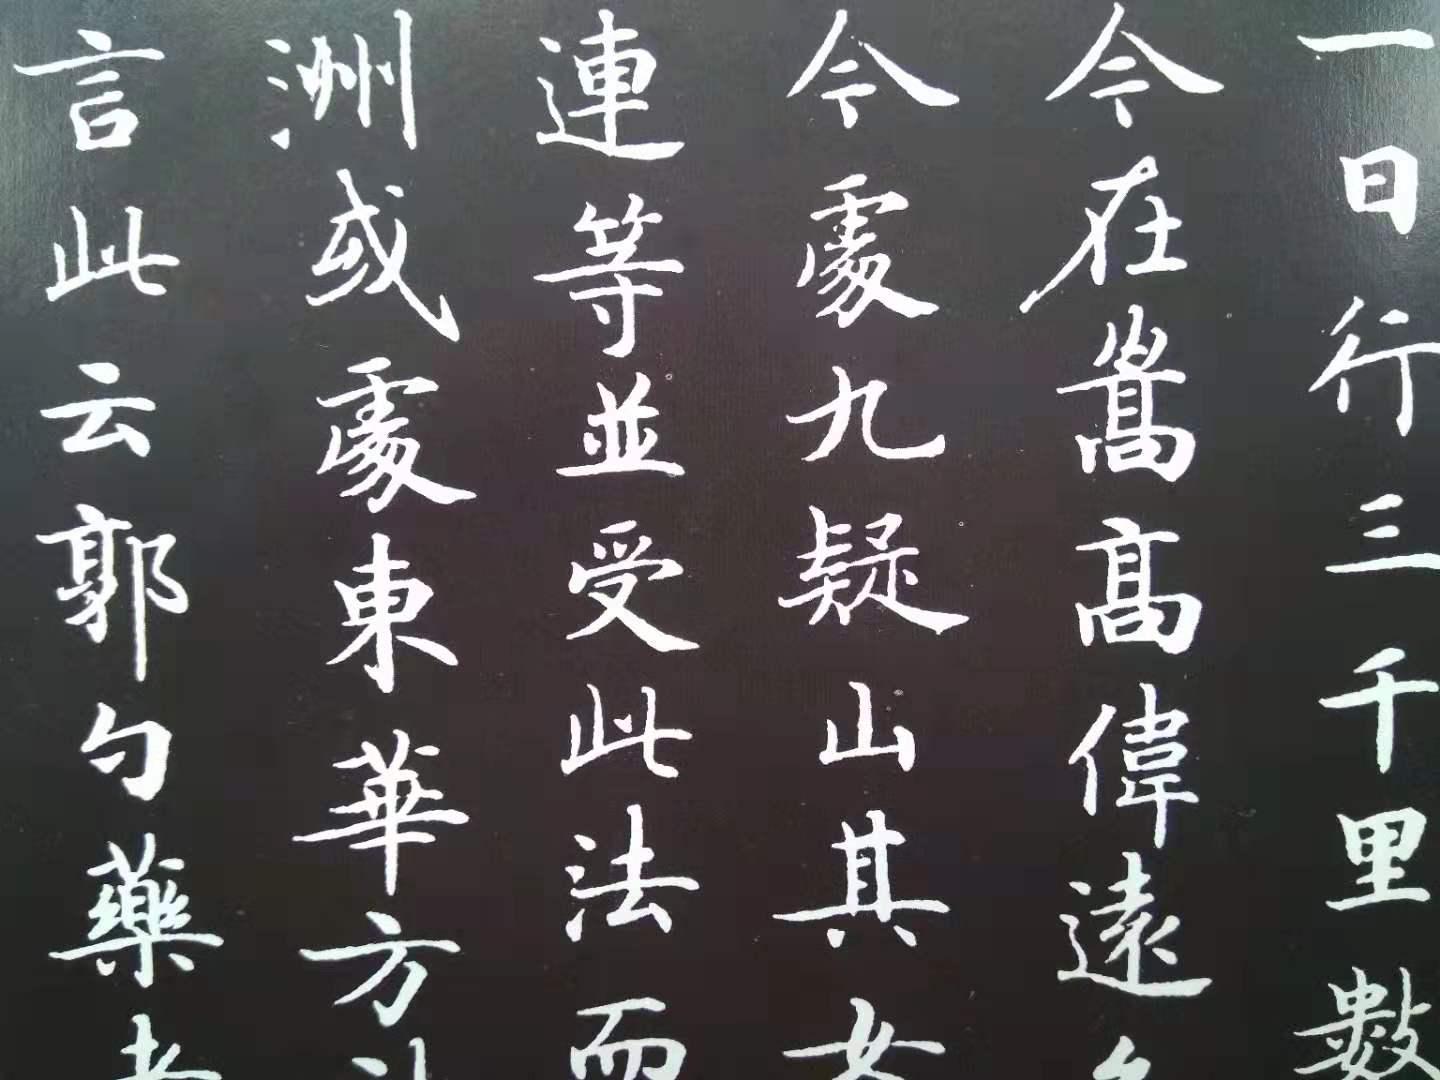 一日行三千里數
今在嵩高偉遠
今處九疑山其女
連等並受此法而
洲或處東華方
言此云郭勺藥